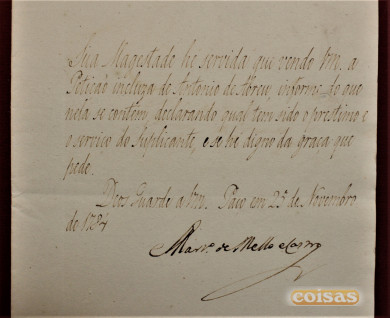 Sua Magestade he servida que vendo Vm. a
Petição incluza de Antonio de Abreu, informe do que
nela se contém, declarando qual tem sido o prestimo e
o serviço do Suplicante, e se he digno da graça que
pede.
Deos Guarde a Vm. Paço em 25 de Novembro
de 1784
Mart.º de Mello e Castro
coisas